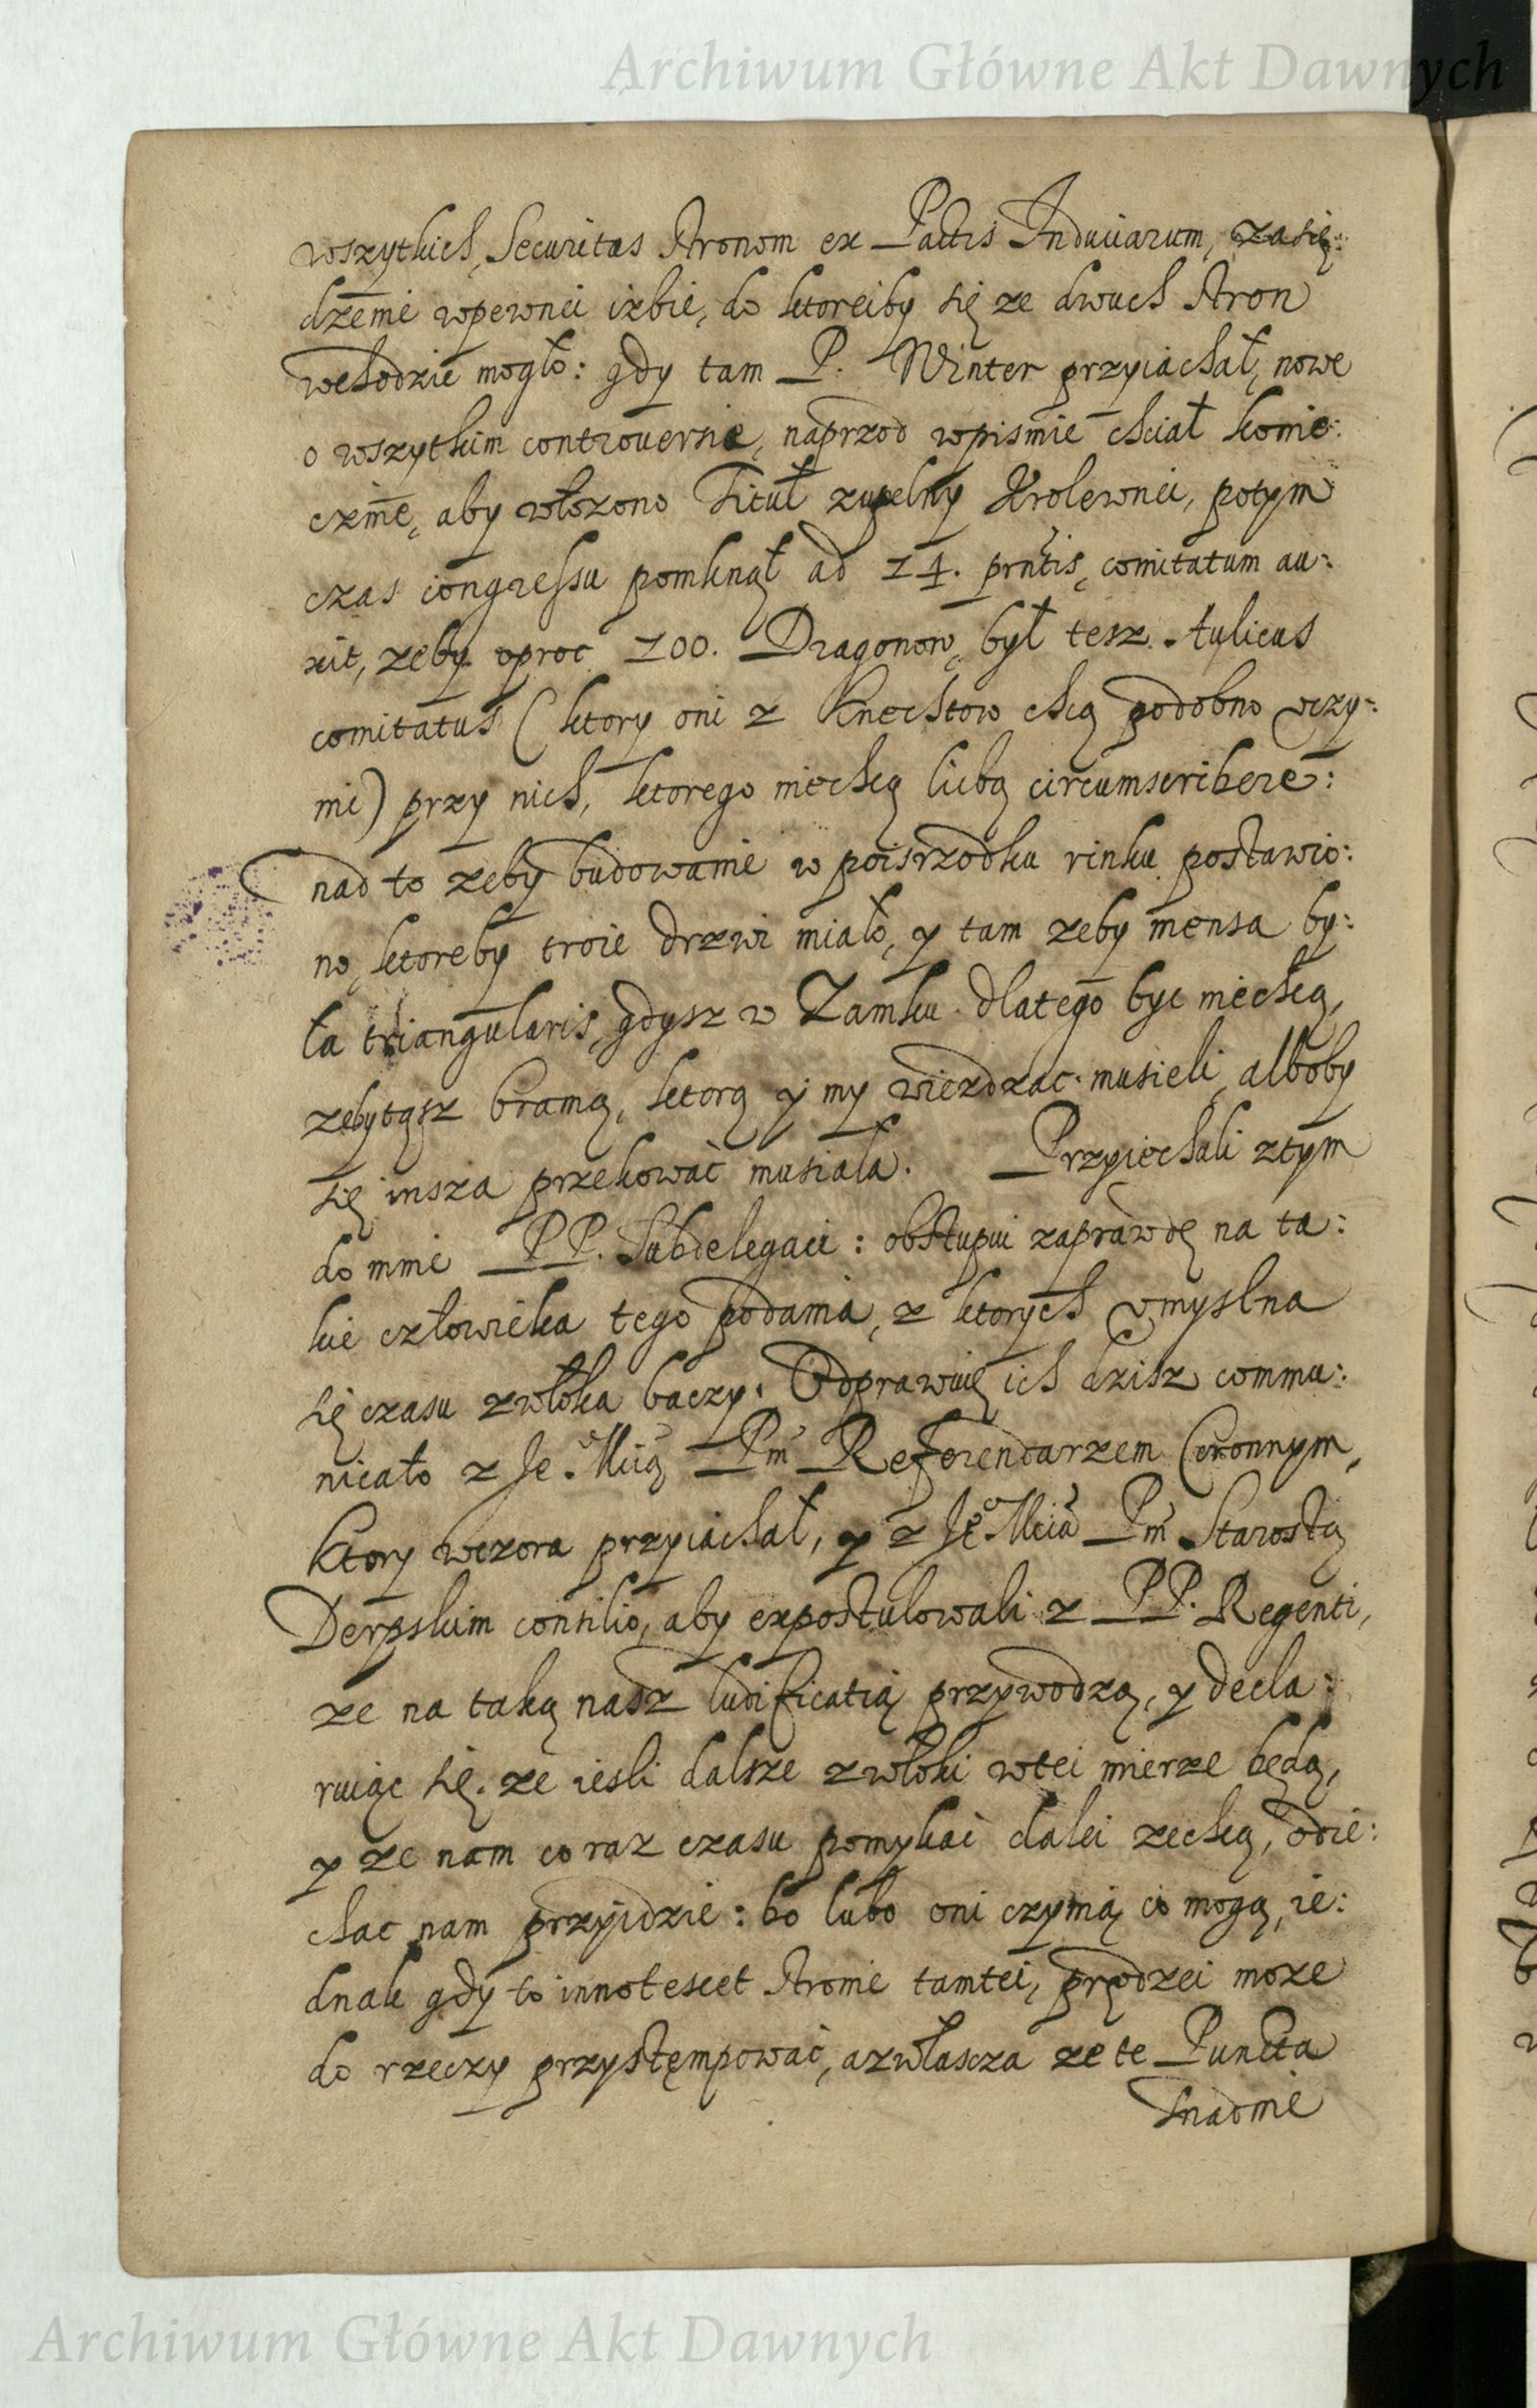 Archiwum Główne Akt Dawnych
wszytkich, Securitas Stronom ex Pactis Induciarum, zasię:
dzenie wpewnei izbie, do ktoreiby się ze dwuch Stron
wchodzic mogło: gdy tam P. Winter przyiachał, nowe
o wszytkim controuersie, naprzod wpismie chciał konie:
cznie, aby włozono Tituł zupełny Krolewnei, potym
czas congressu pomknął ad 24. prntis, comitatum au:
xit, zeby oproc 100. Dragonow, był tesz Aulicus
comitatus (ktory oni z Knechtow chcą podobno vczy:
nic) przy nich, ktorego niechcą liczbą circumscribere:
nad to zeby budowanie w poisrzodku rinku postawio:
no, ktoreby troie drzwi miało, y tam zeby mensa by:
ła triangularis, gdysz w Zamku dlatego byc niechcą,
zebytąsz bramą, ktorą y my wiezdzac musieli, alboby
się insza przekowac musiała. Przyiechali ztym
do mnie PP. Subdelegaci: obstupui zaprawdę na ta:
kie człowieka tego podania, z ktorych vmyslna
się czasu zwłoka baczy. Odprawuię ich dzisz commu:
nicato z Je Mcią Pm Referendarzem Coronnym,
Ktory wczora przyiachał, y z Je Mcią Pm Starostą
Derpskim consilio, aby expostulowali z PP. Regenti,
ze na taką nasz ludificatią przywodzą, y decla:
ruiąc się, ze iesli dalsze zwłoki wtei mierze będą,
y ze nam co raz czasu pomykac dalei zechcą, odie:
chac nam przyidzie: bo lubo oni czynią co mogą, ie:
dnak gdy to innotescet Stronie tamtei, prędzei moze
do rzeczy przystępowac, azwłascza ze te Puncta
snadnie
Archiwum Główne Akt Dawnych